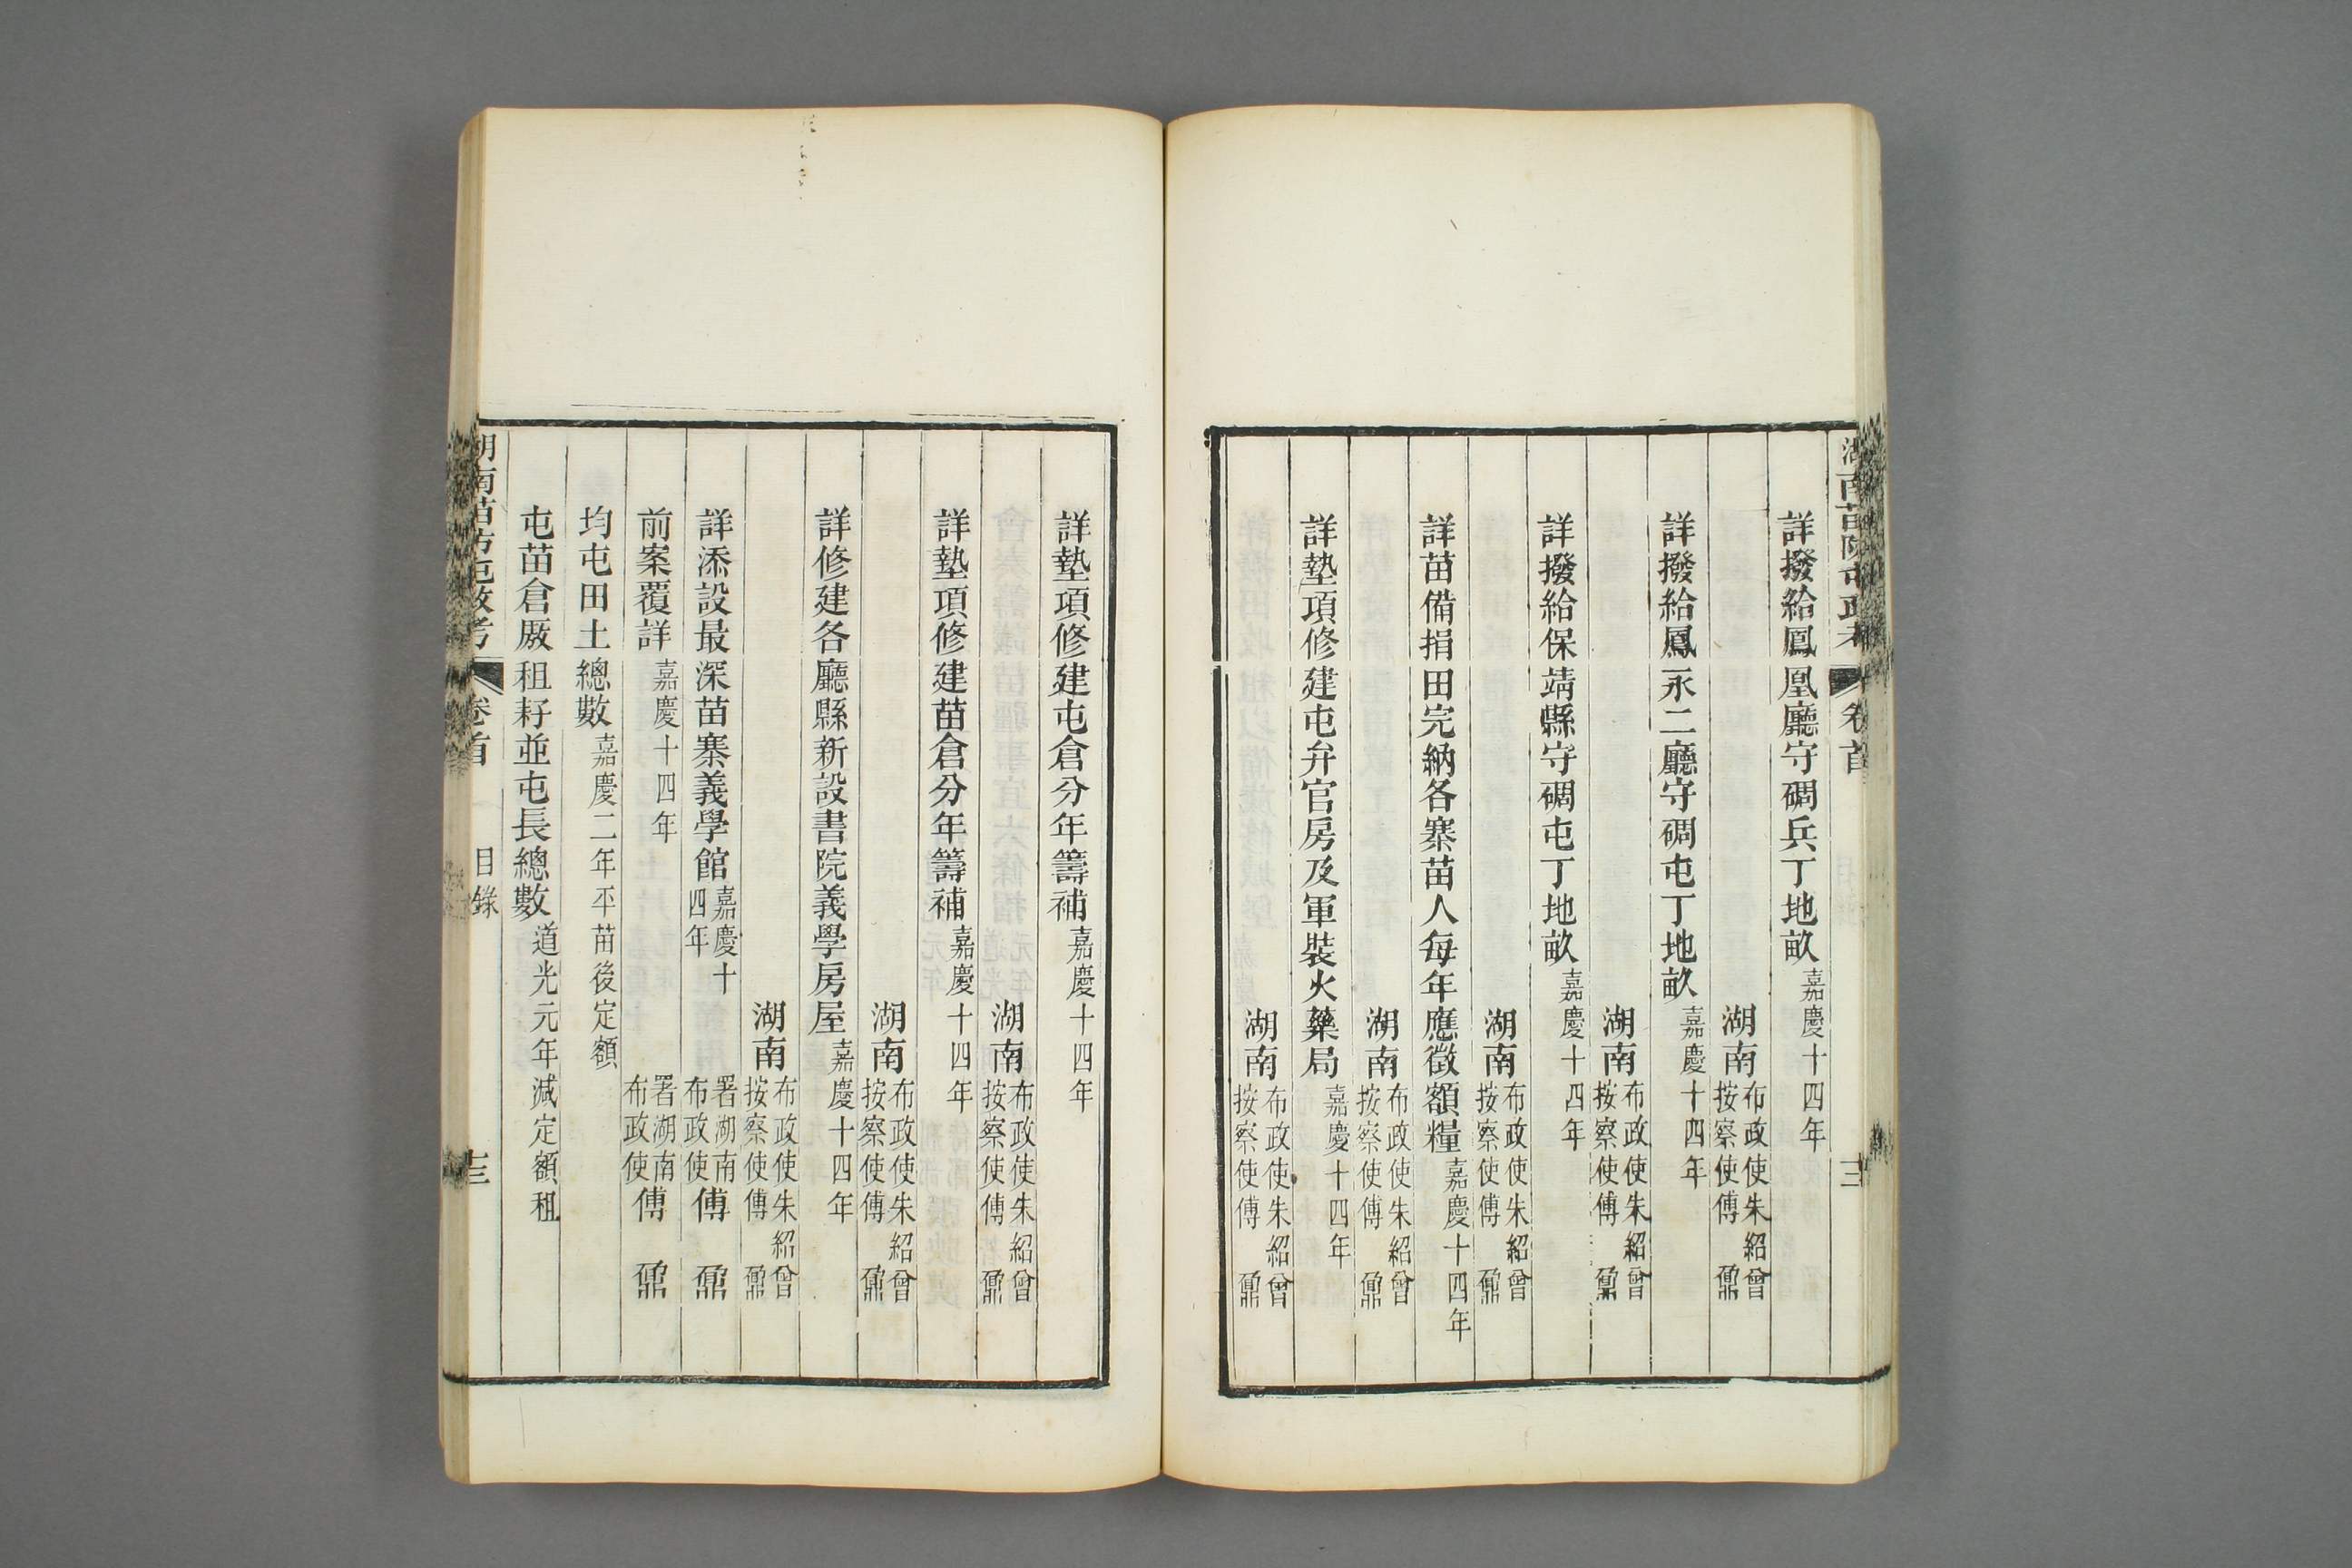 湖南苗防屯政考 卷首 三
詳撥給鳳凰廳守碉兵丁地畝 嘉慶十四年
湖南布政使朱紹曾按察使傅鼐
詳撥給鳳永二廳守碉屯丁地畝 嘉慶十四年
湖南布政使朱紹曾按察使傅鼐
詳撥給保靖縣守碉屯丁地畝 嘉慶十四年
湖南布政使朱紹曾按察使傅鼐
詳苗備捐田完納各寨苗人每年應徵額糧 嘉慶十四年
湖南布政使朱紹曾按察使傅鼐
詳墊項修建屯弁官房及軍裝火藥局 嘉慶十四年
湖南布政使朱紹曾按察使傅鼐
詳墊項修建屯倉分年籌補 嘉慶十四年
湖南布政使朱紹曾按察使傅鼐
詳墊項修建苗倉分年籌補 嘉慶十四年
湖南布政使朱紹曾按察使傅鼐
詳修建各廳縣新設書院義學房屋 嘉慶十四年
湖南布政使朱紹曾按察使傅鼐
詳添設最深苗寨義學館 嘉慶十四年 署湖南布政使傅鼐
前案覆詳 嘉慶十四年 署湖南布政使傅鼐
均屯田土總數 嘉慶二年平苗後定額
屯苗倉厫租籽並屯長總數 道光元年減定額租
湖南苗防屯政考 卷首 目錄 十三